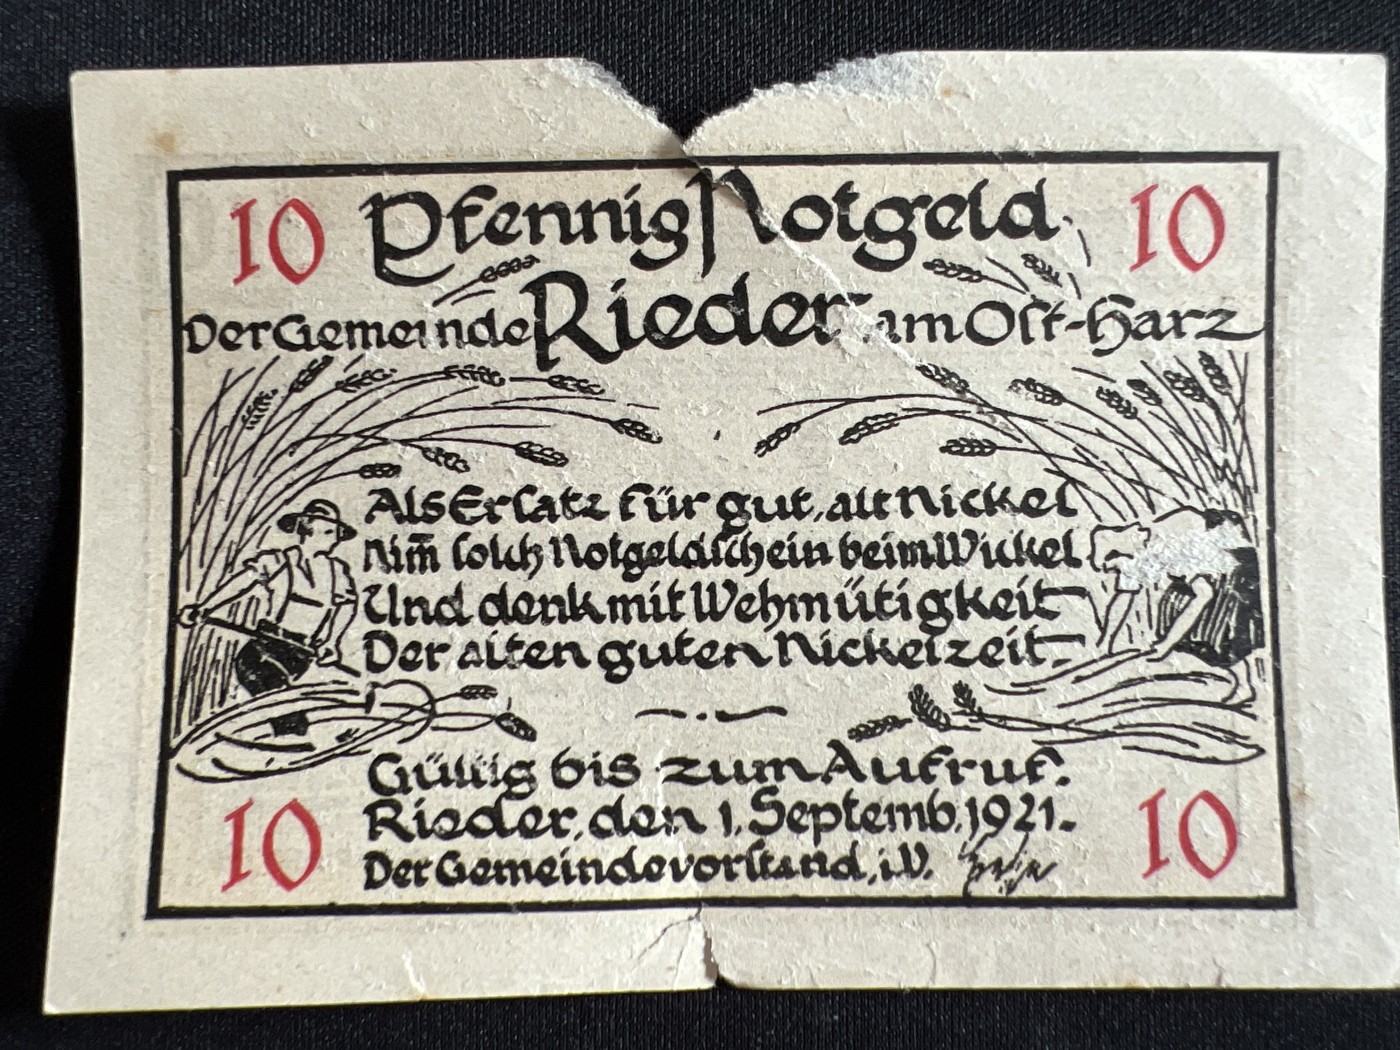 10 Pfennig Notgeld 10
Der Gemeinde Rieder am Oſt-Harz
Als Erſatz für gut, alt Nickel
Nim̄ ſolch Notgeldſchein beim Wickel
Und denk mit Wehmütigkeit
Der alten guten Nickelzeit.
Gültig bis zum Aufruf.
Rieder, den 1. Septemb. 1921.
10 Der Gemeindevorſtand, i.V. 10